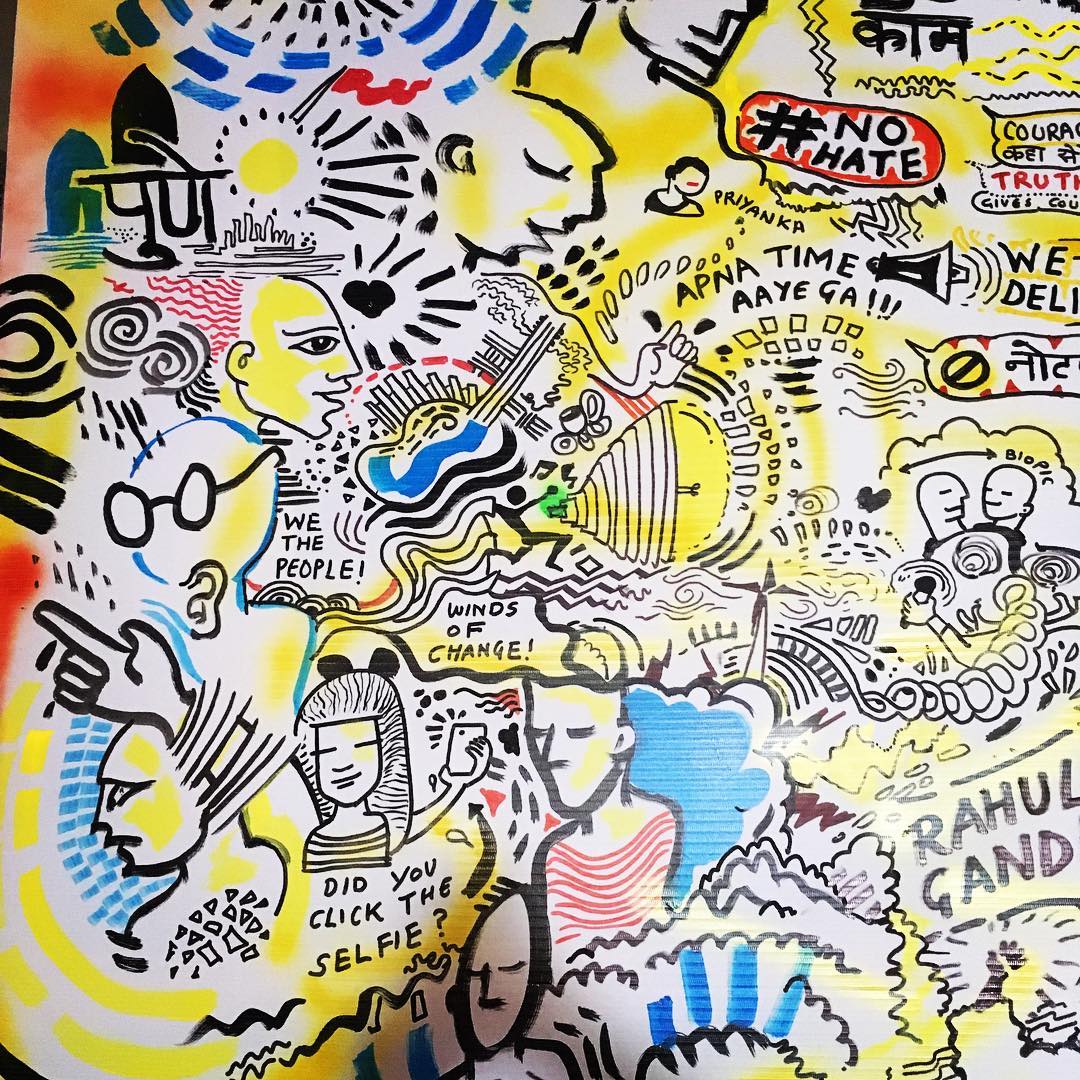 काम
#NO
HATE
COURAG
कहा से
TRUTH
GIVES COU
पुणे
PRIYANKA
APNA TIME
AAYEGA!!!
WE
DELI
नोट
BIOPIC
WE
THE
PEOPLE!
WINDS
OF
CHANGE!
RAHUL
GAND
DID YOU
CLICK THE
SELFIE?